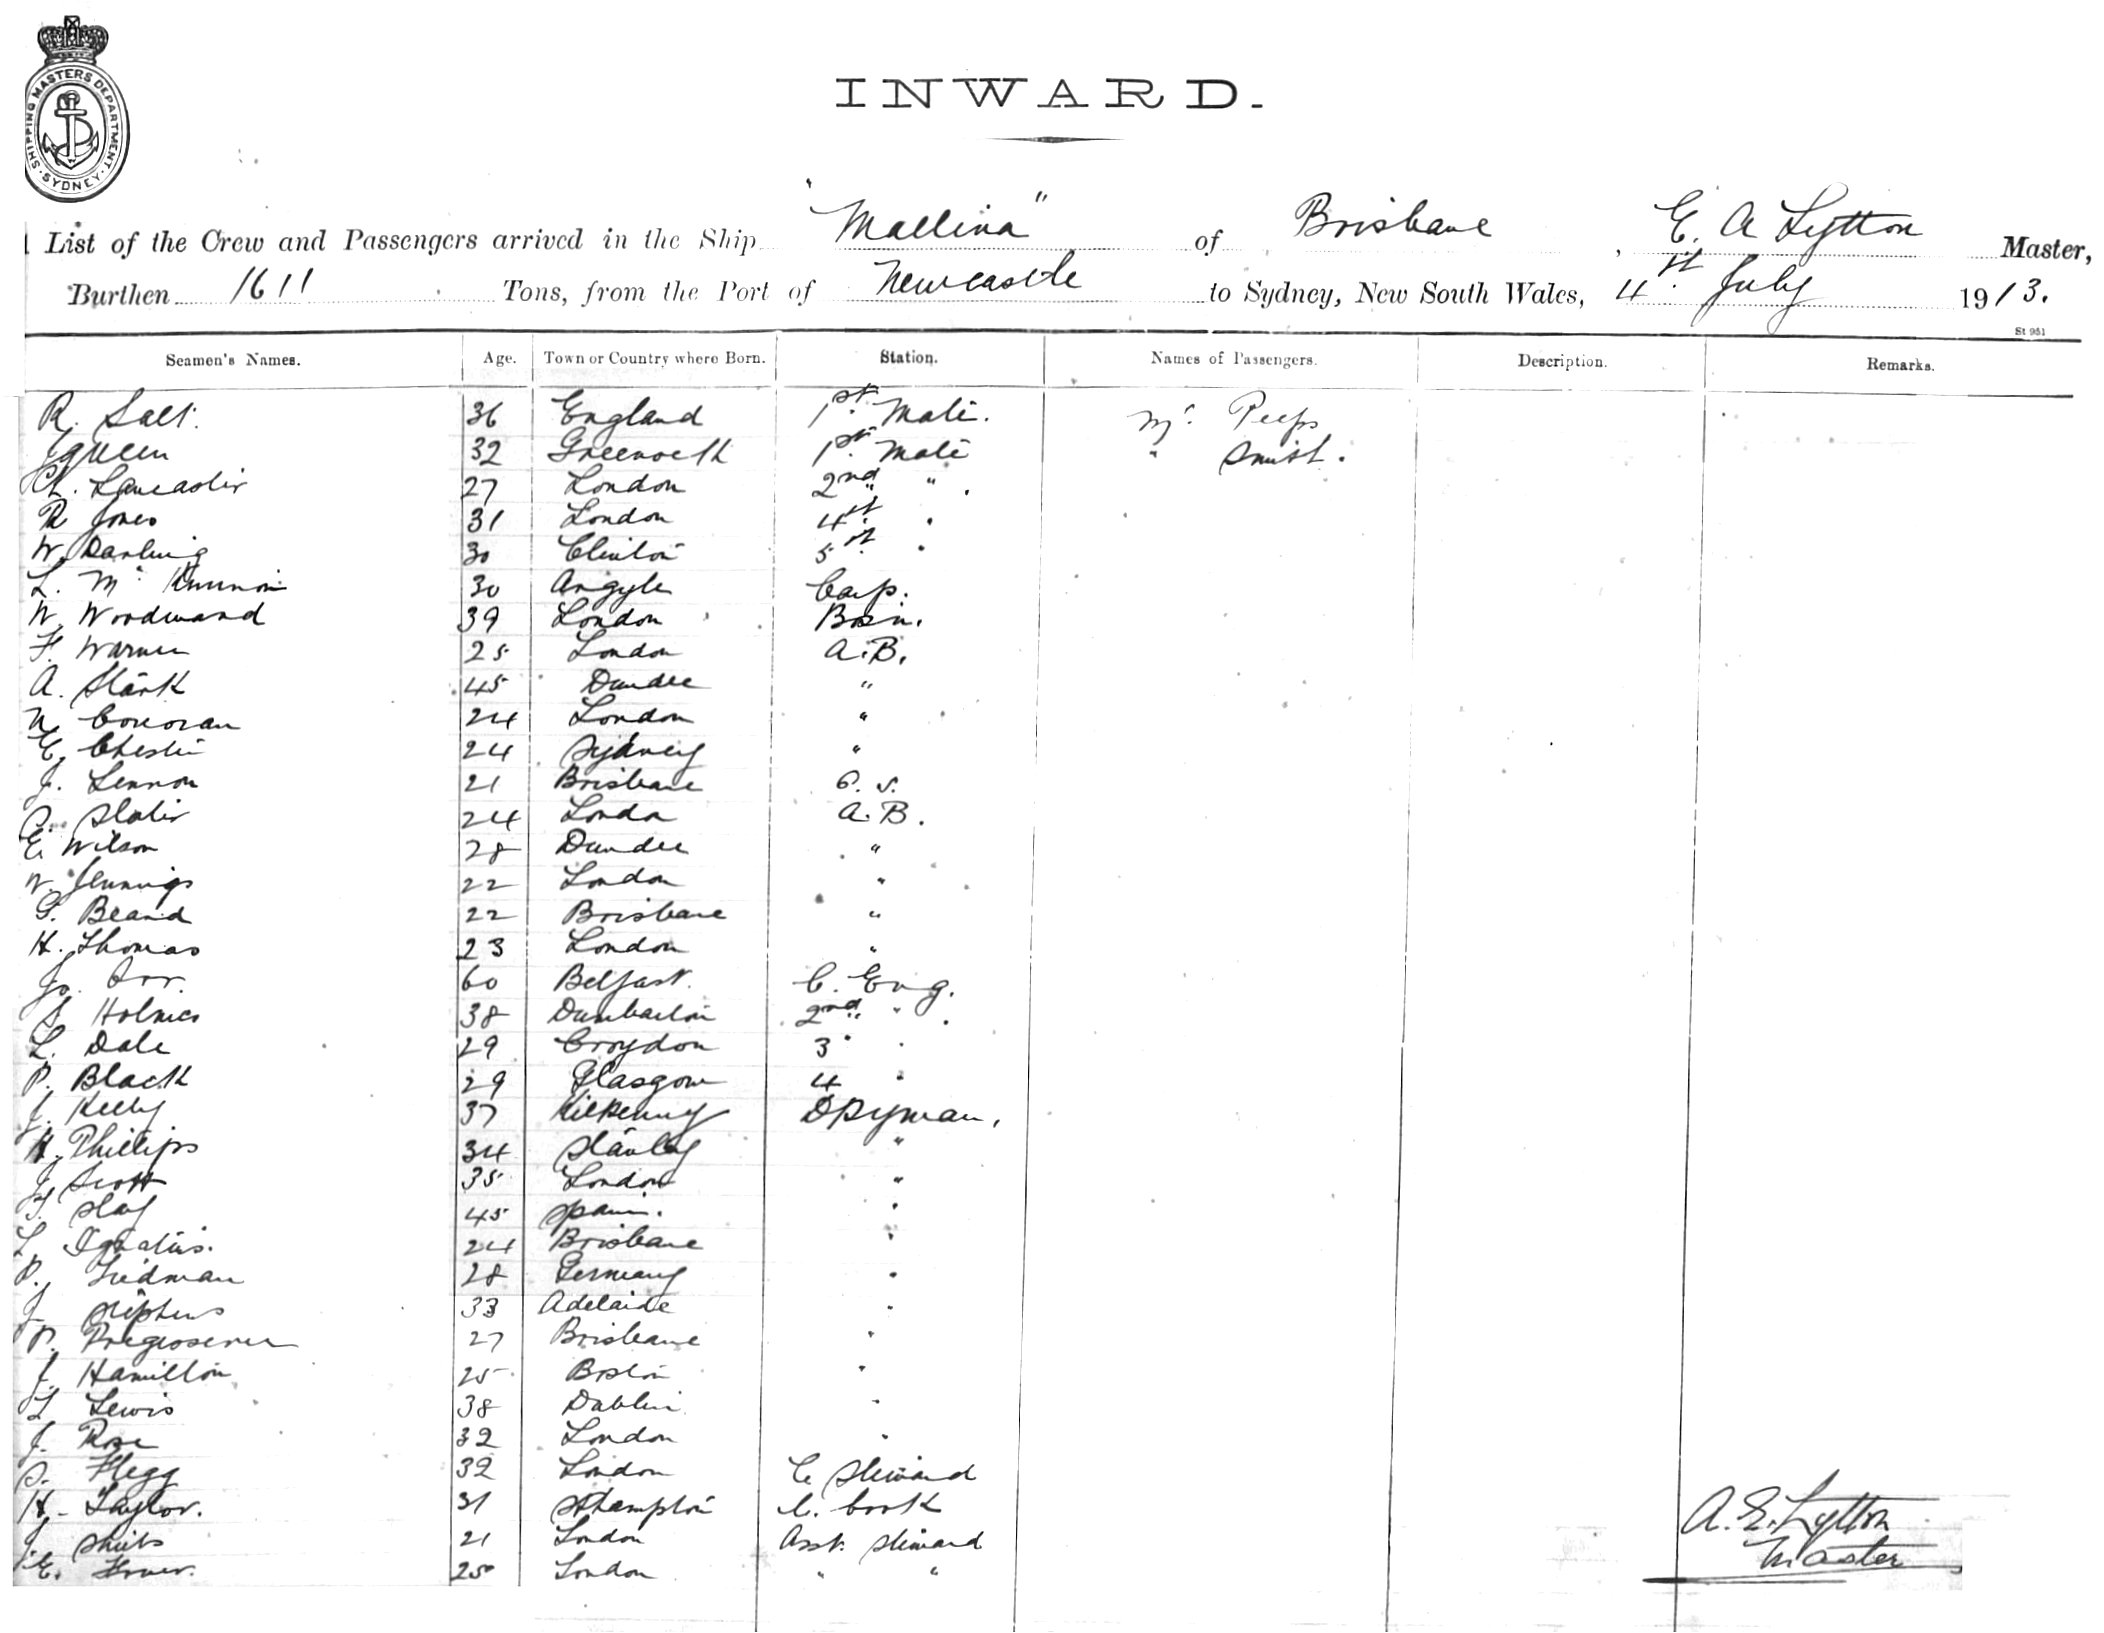 SHIPPING MASTERS DEPARTMENT
SYDNEY
INWARD.
List of the Crew and Passengers arrived in the Ship "Mallina" of Brisbane, E. A Lytton Master,
Burthen 1611 Tons, from the Port of Newcastle to Sydney, New South Wales, 4st July 1913.
St 951
Seamen's Names. Age. Town or Country where Born. Station. Names of Passengers. Description. Remarks.
R. Salt. 36 England 1st Mate. Mr Peeps
32 1st Mate " Smith.
Ch. Lancaster 27 London 2nd " .
R Jones 31 London 4st "
W. Darling 30 Clinton 5st "
L. Mc Kinnon 30 Argyle Carp.
W. Woodward 39 London Bosn.
F. Warner 25 London A.B.
A. Stark 45 Dundee "
N Corcoran 24 London "
E. Chester 24 Sydney "
J. Lennon 21 Brisbane O. S.
S. Slater 24 London A.B.
E. Wilson 28 Dundee "
W. Jennings 22 London "
G. Beand 22 Brisbane "
H. Thomas 23 London "
Jo. Orr. 60 Belfast. C. Eng.
S Holmes 38 Dumbarton 2nd " .
L. Dale 29 Croydon 3 " "
P. Black 29 Glasgow 4 "
J. Kelly 37 Kilkenny Dkyman.
H. Phillips 34 Stanley "
J. Scott 35 London "
T. Slay 45 Spain. "
L. Ignatius. 24 Brisbane "
P. Friedman 28 Germany "
J Stephens 33 Adelaide "
P. 27 Brisbane "
J. Hamilton 25 Boston "
L Lewis 38 Dublin "
J. Rose 32 London "
S. Flegg 32 London C Steward
H. Taylor. 31 Sthampton C. Cook
J 21 London Asst. Steward
E. 25 London " "
A. E. Lytton
Master